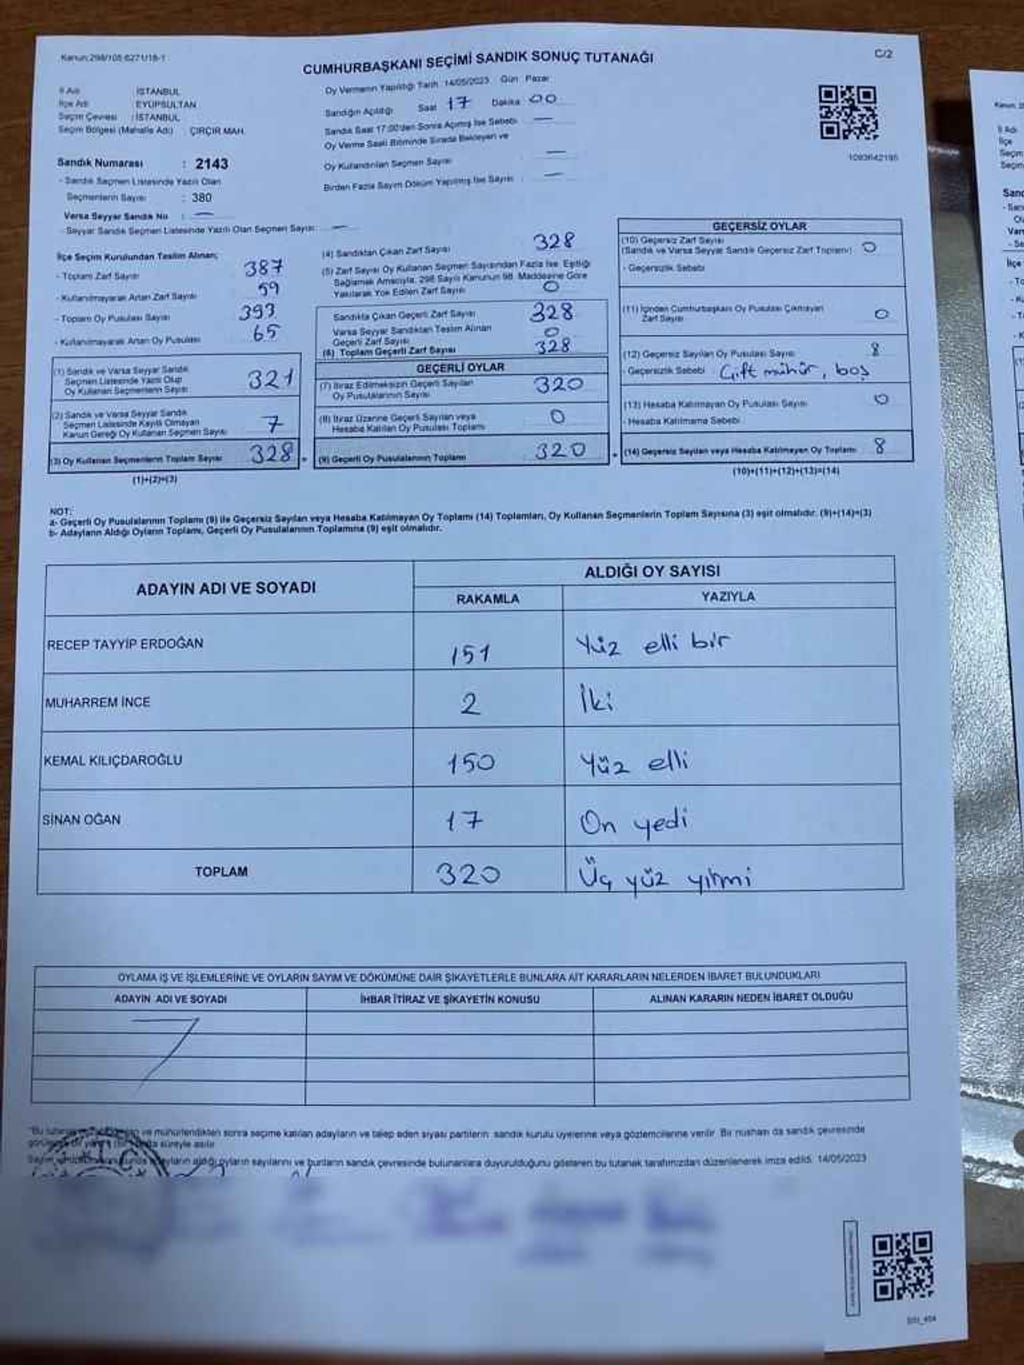 Kanun:298/105 6271/18-1
C/2
CUMHURBAŞKANI SEÇİMİ SANDIK SONUÇ TUTANAĞI
İl Adı : İSTANBUL
İlçe Adı : EYÜPSULTAN
Seçim Çevresi : İSTANBUL
Seçim Bölgesi (Mahalle Adı) : ÇIRÇIR MAH.
Sandık Numarası : 2143
- Sandık Seçmen Listesinde Yazılı Olan
Seçmenlerin Sayısı : 380
Varsa Seyyar Sandık No : —
- Seyyar Sandık Seçmen Listesinde Yazılı Olan Seçmen Sayısı: —
Oy Vermenin Yapıldığı Tarih : 14/05/2023 Gün : Pazar
Sandığın Açıldığı Saat 17 Dakika 00
Sandık Saat 17:00'den Sonra Açılmış İse Sebebi —
Oy Verme Saati Bitiminde Sırada Bekleyen ve
Oy Kullandırılan Seçmen Sayısı —
Birden Fazla Sayım Döküm Yapılmış İse Sayısı : —
1093642195
İlçe Seçim Kurulundan Teslim Alınan;
- Toplam Zarf Sayısı 387
- Kullanılmayarak Artan Zarf Sayısı 59
- Toplam Oy Pusulası Sayısı 393
- Kullanılmayarak Artan Oy Pusulası 65
(1) Sandık ve Varsa Seyyar Sandık
Seçmen Listesinde Yazılı Olup
Oy Kullanan Seçmenlerin Sayısı 321
(2) Sandık ve Varsa Seyyar Sandık
Seçmen Listesinde Kayıtlı Olmayan
Kanun Gereği Oy Kullanan Seçmen Sayısı 7
(3) Oy Kullanan Seçmenlerin Toplam Sayısı 328
(1)+(2)=(3)
(4) Sandıktan Çıkan Zarf Sayısı 328
(5) Zarf Sayısı Oy Kullanan Seçmen Sayısından Fazla İse, Eşitliği
Sağlamak Amacıyla, 298 Sayılı Kanunun 98. Maddesine Göre
Yakılarak Yok Edilen Zarf Sayısı 0
Sandıkta Çıkan Geçerli Zarf Sayısı 328
Varsa Seyyar Sandıktan Teslim Alınan
Geçerli Zarf Sayısı 0
(6) Toplam Geçerli Zarf Sayısı 328
GEÇERLİ OYLAR
(7) İtiraz Edilmeksizin Geçerli Sayılan
Oy Pusulalarının Sayısı 320
(8) İtiraz Üzerine Geçerli Sayılan veya
Hesaba Katılan Oy Pusulası Toplamı 0
(9) Geçerli Oy Pusulalarının Toplamı 320
GEÇERSİZ OYLAR
(10) Geçersiz Zarf Sayısı
(Sandık ve Varsa Seyyar Sandık Geçersiz Zarf Toplamı) 0
- Geçersizlik Sebebi
(11) İçinden Cumhurbaşkanı Oy Pusulası Çıkmayan
Zarf Sayısı 0
(12) Geçersiz Sayılan Oy Pusulası Sayısı 8
- Geçersizlik Sebebi Çift mühür, boş
(13) Hesaba Katılmayan Oy Pusulası Sayısı 0
- Hesaba Katılmama Sebebi
(14) Geçersiz Sayılan veya Hesaba Katılmayan Oy Toplamı 8
(10)+(11)+(12)+(13)=(14)
NOT:
a- Geçerli Oy Pusulalarının Toplamı (9) ile Geçersiz Sayılan veya Hesaba Katılmayan Oy Toplamı (14) Toplamları, Oy Kullanan Seçmenlerin Toplam Sayısına (3) eşit olmalıdır. (9)+(14)=(3)
b- Adayların Aldığı Oyların Toplamı, Geçerli Oy Pusulalarının Toplamına (9) eşit olmalıdır.
ADAYIN ADI VE SOYADI
ALDIĞI OY SAYISI
RAKAMLA YAZIYLA
RECEP TAYYİP ERDOĞAN 151 Yüz elli bir
MUHARREM İNCE 2 İki
KEMAL KILIÇDAROĞLU 150 Yüz elli
SİNAN OĞAN 17 On yedi
TOPLAM 320 Üç yüz yirmi
OYLAMA İŞ VE İŞLEMLERİNE VE OYLARIN SAYIM VE DÖKÜMÜNE DAİR ŞİKAYETLERLE BUNLARA AİT KARARLARIN NELERDEN İBARET BULUNDUKLARI
ADAYIN ADI VE SOYADI İHBAR İTİRAZ VE ŞİKAYETİN KONUSU ALINAN KARARIN NEDEN İBARET OLDUĞU
ve mühürlendikten sonra seçime katılan adayların ve talep eden siyasi partilerin sandık kurulu üyelerine veya gözlemcilerine verilir. Bir nüshası da sandık çevresinde
süreyle asılır.
aldığı oyların sayılarını ve bunların sandık çevresinde bulunanlara duyurulduğunu gösteren bu tutanak tarafımızdan düzenlenerek imza edildi. 14/05/2023